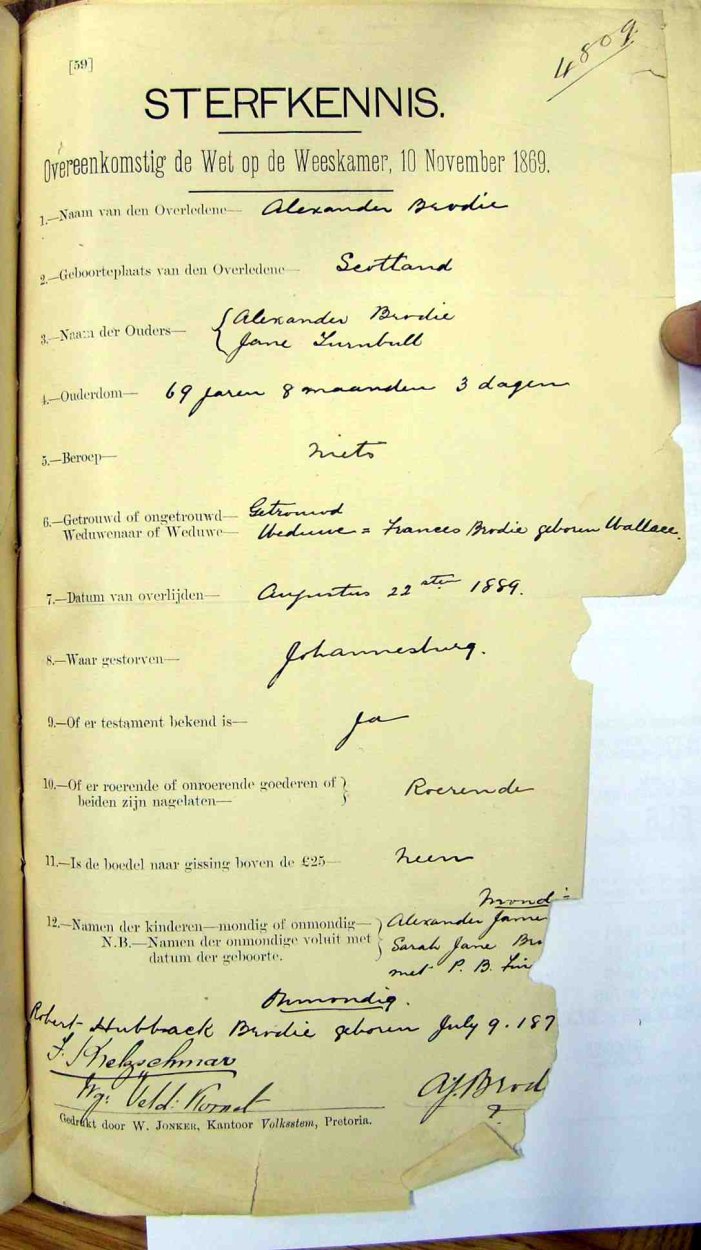 [59]
4809.
STERFKENNIS.
Overeenkomstig de Wet op de Weeskamer, 10 November 1869.
1.—Naam van den Overledene— Alexander Brodie
2.—Geboorteplaats van den Overledene— Scotland
3.—Naam der Ouders— { Alexander Brodie
Jane Turnbull
4.—Ouderdom— 69 jaren 8 maanden 3 dagen
5.—Beroep— Niets
6.—Getrouwd of ongetrouwd— Getrouwd
Weduwenaar of Weduwe— Weduwe = Frances Brodie geboren Wallace.
7.—Datum van overlijden— Augustus 22 ste 1889.
8.—Waar gestorven— Johannesburg.
9.—Of er testament bekend is— Ja
10.—Of er roerende of onroerende goederen of }
beiden zijn nagelaten— Roerende
11.—Is de boedel naar gissing boven de £25— Neen
Mond:
12.—Namen der kinderen—mondig of onmondig— } Alexander Jame
N.B.—Namen der onmondige voluit met Sarah Jane Bro
datum der geboorte. met P. B.
Onmondig.
Robert Hubback Brodie geboren July 9. 187
F. Kretzschmar
Wg: Veld: Kornet
A.J. Brod
Gedrukt door W. JONKER, Kantoor Volksstem, Pretoria.